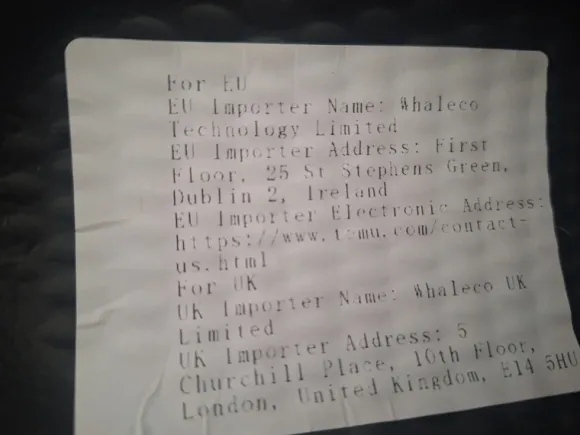 For EU
EU Importer Name: Whaleco
Technology Limited
EU Importer Address: First
Floor, 25 St Stephens Green,
Dublin 2, Ireland
EU Importer Electronic Address:
https://www.temu.com/contact-
us.html
For UK
UK Importer Name: Whaleco UK
Limited
UK Importer Address: 5
Churchill Place, 10th Floor,
London, United Kingdom, E14 5HU